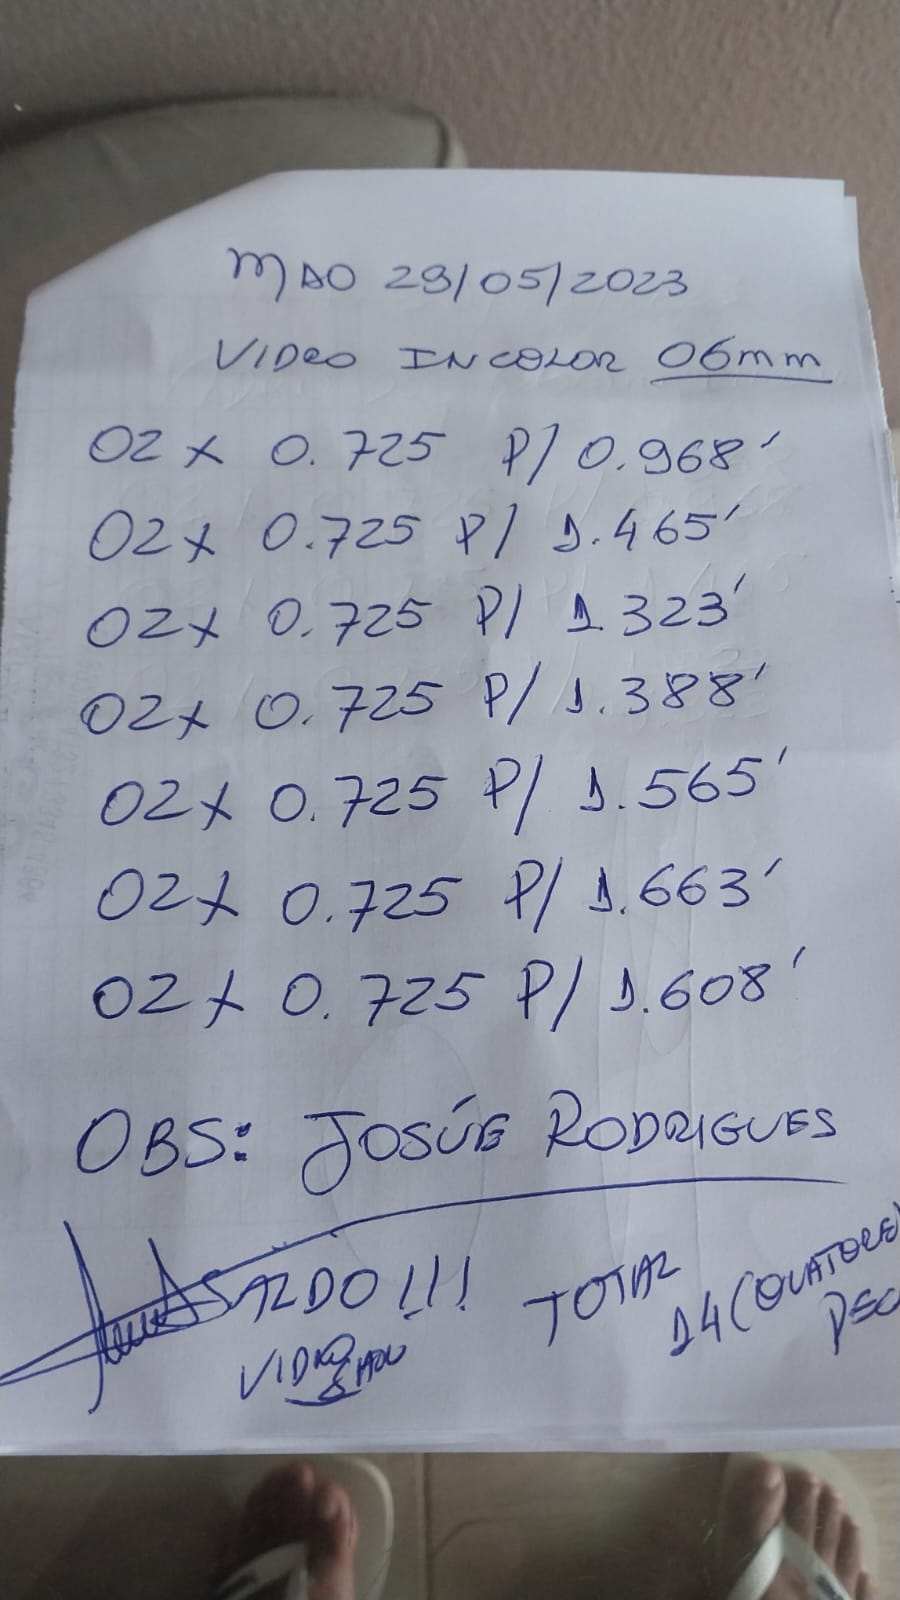 MAO 29/05/2023
VIDRO INCOLOR 06mm
02 x 0.725 P/ 0.968'
02x 0.725 P/ 1.465'
02x 0.725 P/ 1.323'
02x 0.725 P/ 1.388'
02x 0.725 P/ 1.565'
02x 0.725 P/ 1.663'
02x 0.725 P/ 1.608'
OBS: JOSÚE RODRIGUES
SALDO!!!
VIDRO
TOTAL
14 (QUATORZE)